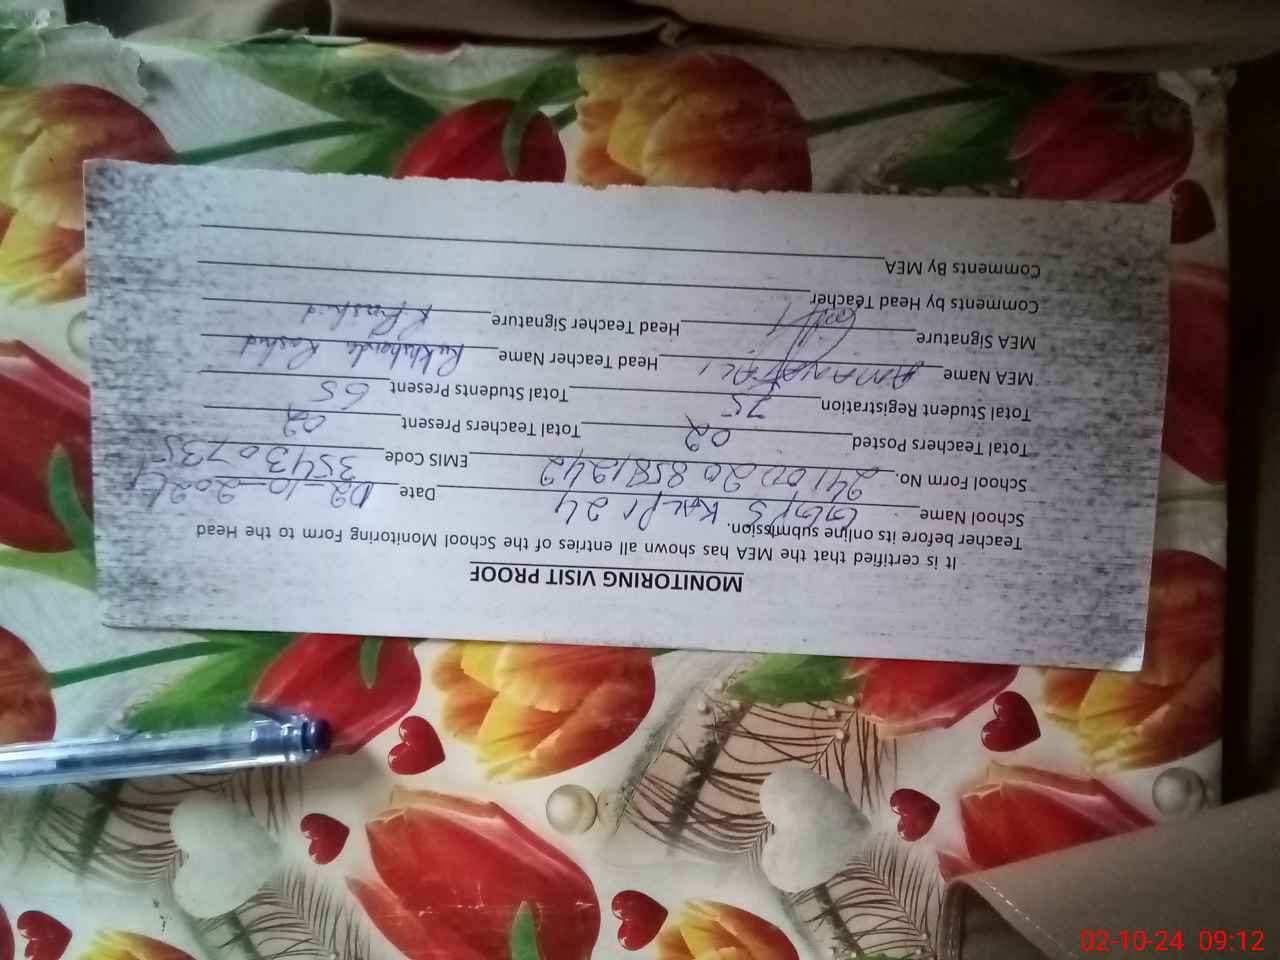 MONITORING VISIT PROOF
It is certified that the MEA has shown all entries of the School Monitoring Form to the Head
Teacher before its online submission.
School Name GGPS Date 02-10-2024
School Form No. EMIS Code 35430735
Total Teachers Posted 02 Total Teachers Present 02
Total Student Registration 75 Total Students Present 65
MEA Name Head Teacher Name Rashid
MEA Signature Head Teacher Signature Rashid
Comments by Head Teacher
Comments By MEA
02-10-24 09:12